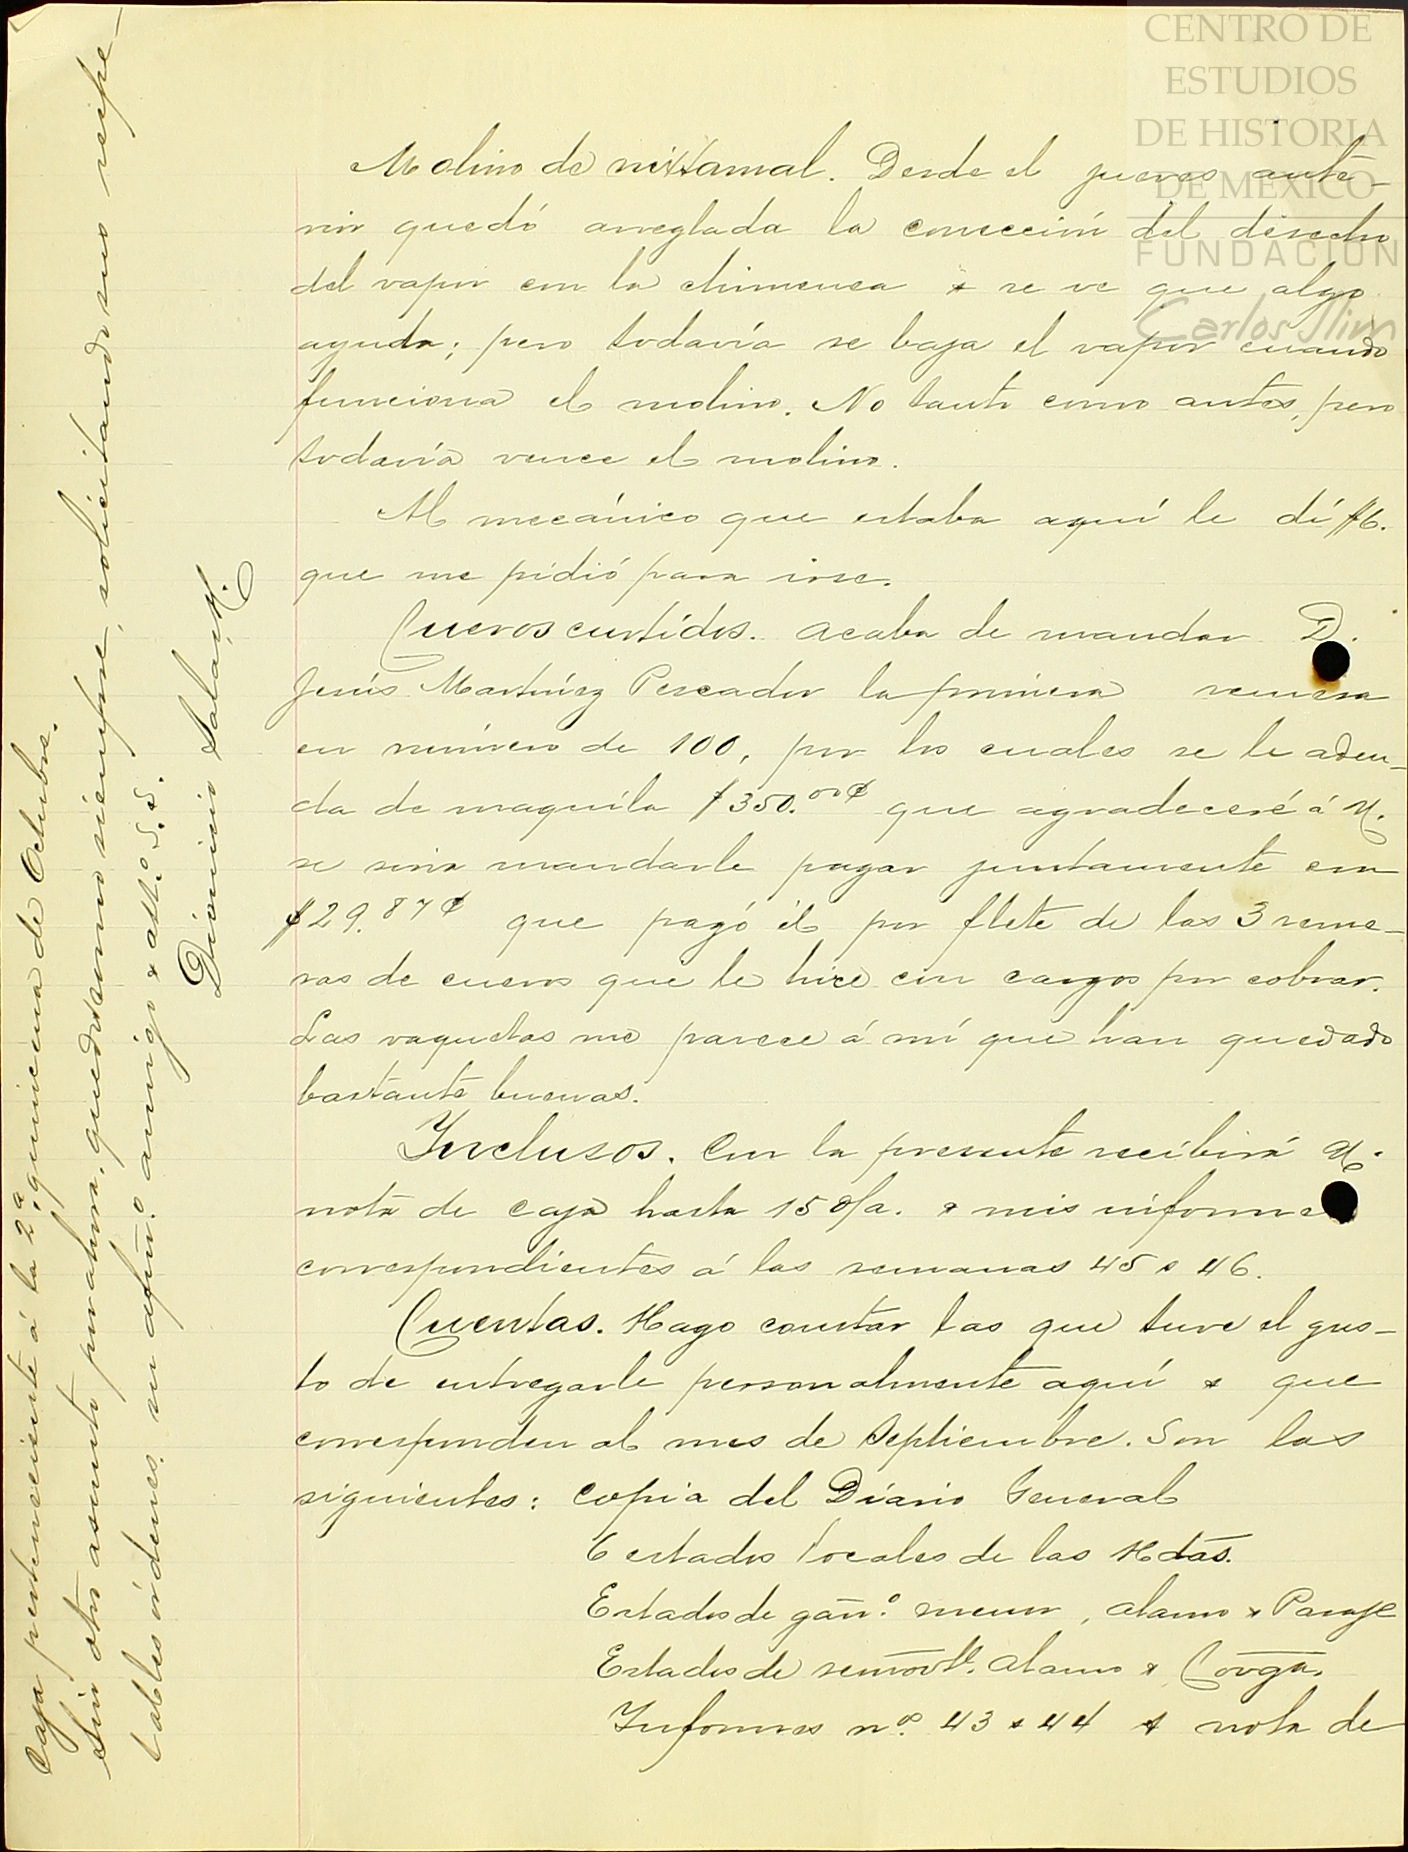 CENTRO DE
ESTUDIOS
DE HISTORIA
DE MÉXICO
FUNDACIÓN
Carlos Slim
Molino de nixtamal. Desde el jueves ante-
rior quedó arreglada la conección del desecho
del vapor con la chimenea & se ve que algo
ayuda; pero todavía se baja el vapor cuando
funciona el molino. No tanto como antes, pero
todavía vence el molino.
Al mecánico que estaba aquí le dí $6.
que me pidió para irse.
Cueros curtidos. Acaba de mandar D.
Jesús Martínez Pescador la primera remesa
en número de 100, por los cuales se le adeu-
da de maquila $350.00¢ que agradeceré á U.
se sirva mandarle pagar juntamente con
$29.87¢ que pagó él por flete de las 3 reme-
sas de cueros que le hice con cargos por cobrar.
Las vaquetas me parece á mí que han quedado
bastante buenas.
Inclusos. Con la presente recibirá U.
nota de caja hasta 15 o/a. & mis informes
correspondientes á las semanas 45 & 46.
Cuentas. Hago constar las que tuve el gus-
to de entregarle personalmente aquí & que
corresponden al mes de Septiembre. Son las
siguientes: copia del Diario General
6 estados locales de las Hdas.
Estados de gan.o menor, alamo & Paraje
Estados de semovtes. alamo & Congn.
Informes n.os 43 & 44 & nota de
Caja perteneciente á la 2.a quincena de Octubre.
Sin otro asunto por ahora, quedo como siempre, solicitando sus respe-
tables órdenes su afmo. amigo & atto. S.S.
Dionisio Salas H.